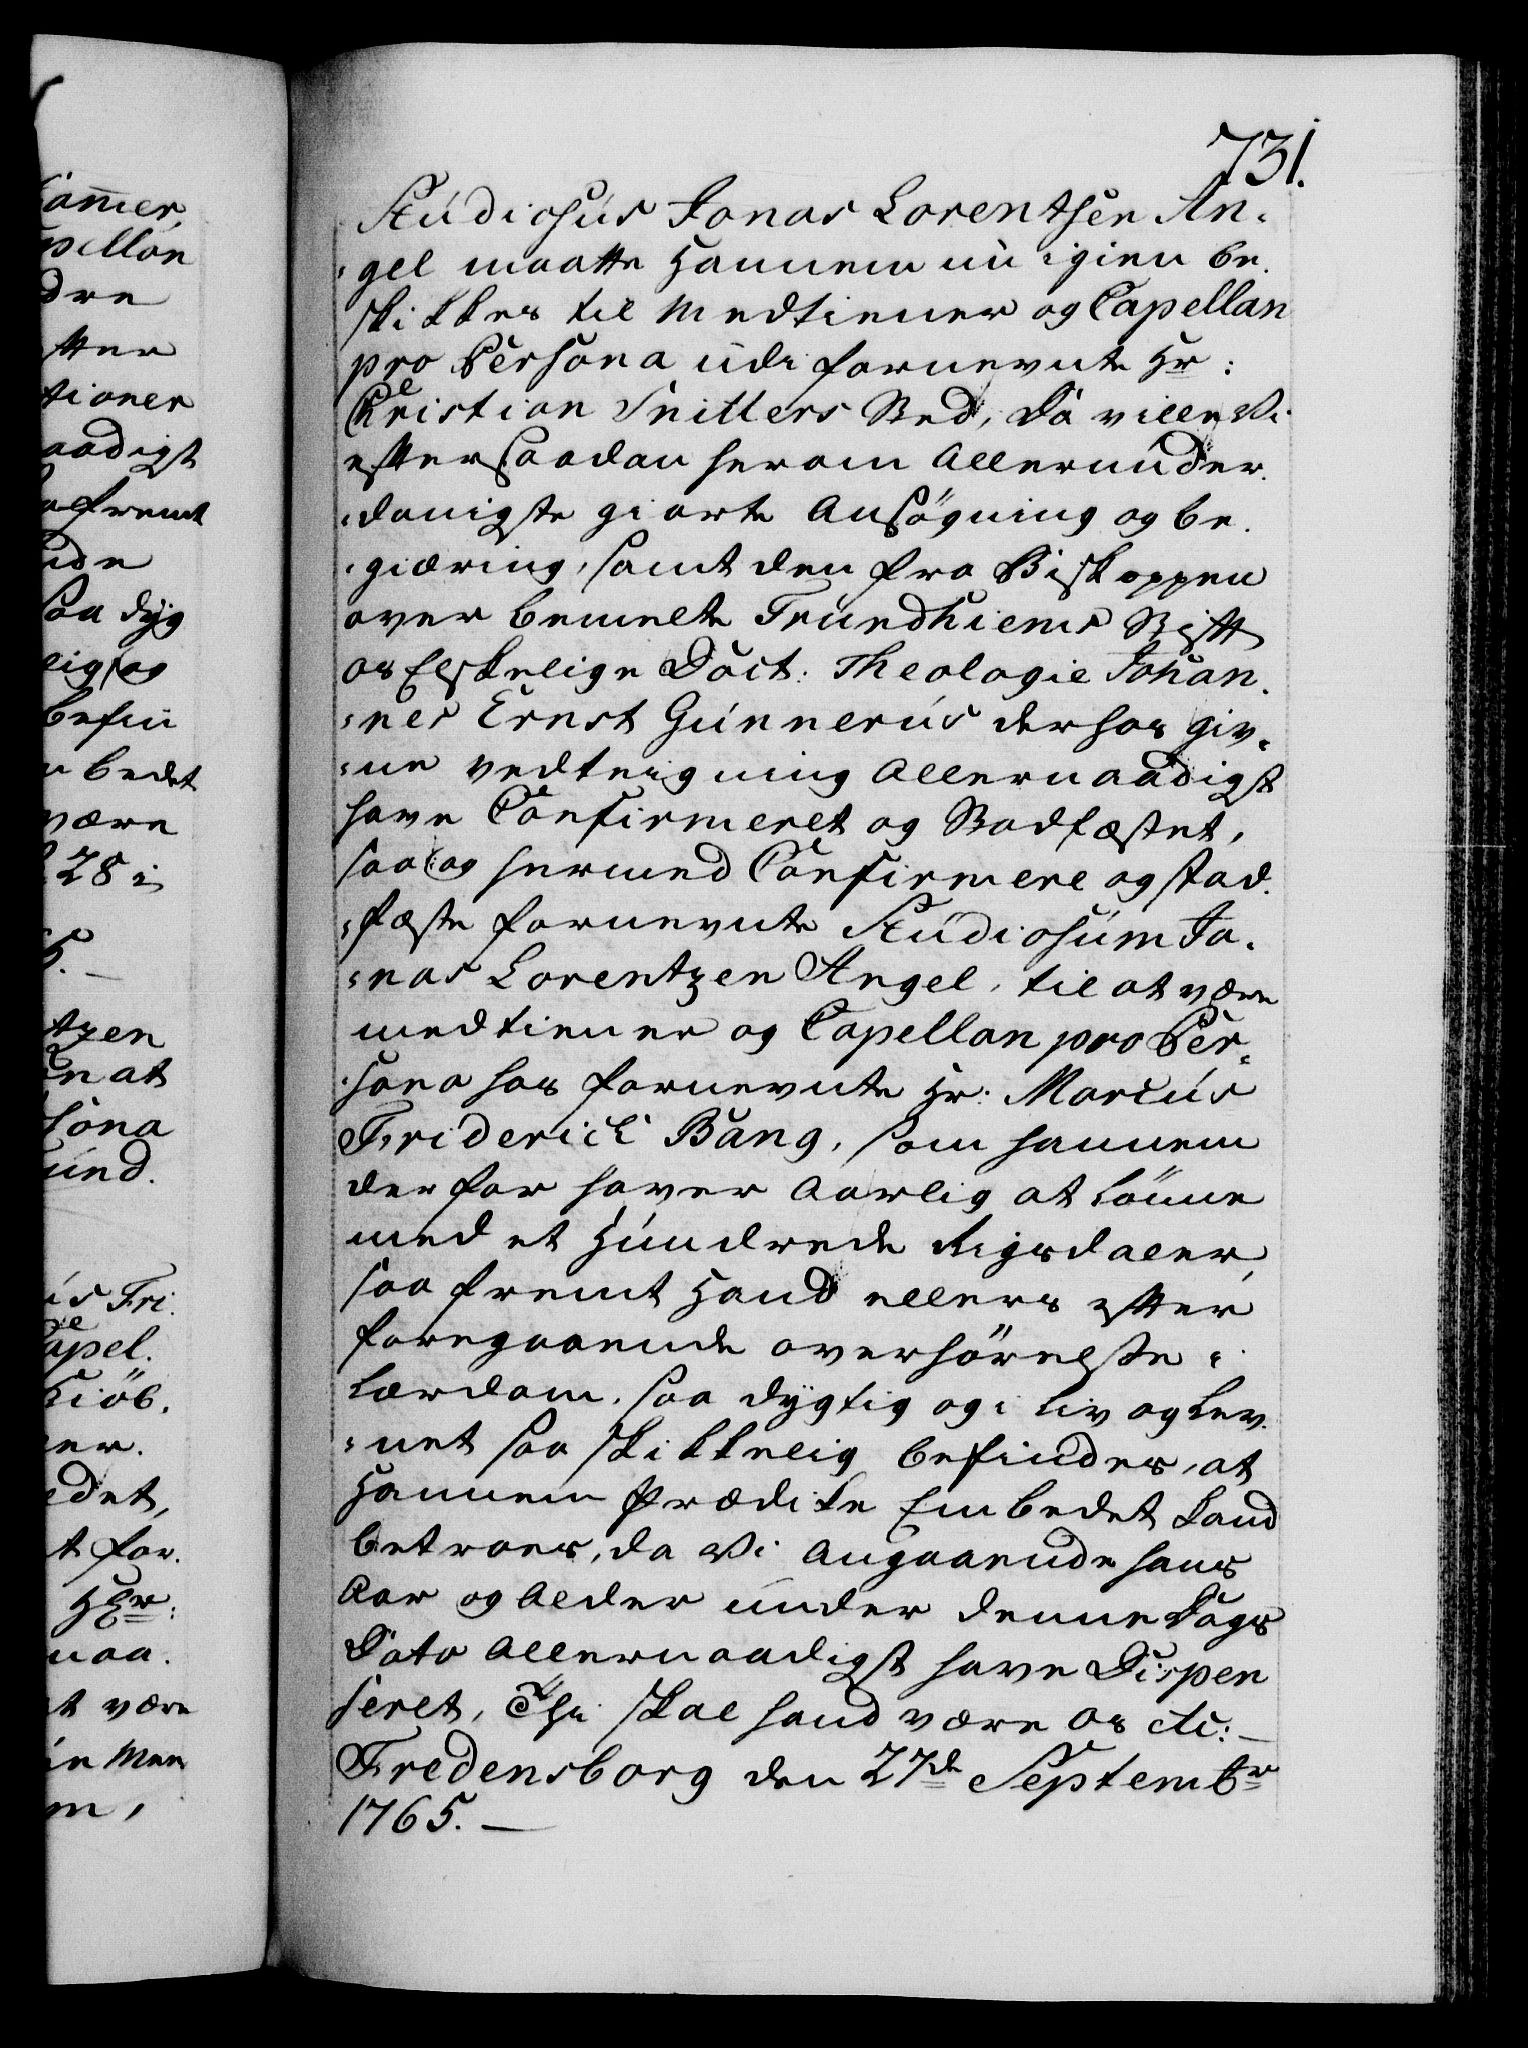 731.
Studiosus Jonas Lorentsen An-
-gel maatte Hannem nu igien be-
skikkes til Medtiener og Capellan
pro Persona udi fornevnte Hr:
Christian Snitlers Sted, Da ville Vi
efter saadan herom Allerunder-
-danigste giorte Ansøgning og be-
-giæring, samt den fra Biskoppen
over bemelte Trundhiems Stift
os Elskelige Doct: Theologie Johan-
-nes Ernst Gunnerus derhos giv-
-ne vedtegning Allernaadigst
have Confirmeret og Stadfæstet,
saa og hermed Confirmere og stad-
-fæste fornevnte Studiosum Jo-
-nas Lorentzen Angel, til at være
medtiener og Capellan pro Per-
-sona hos fornevnte Hr: Marcus
Friderich Bang, som hannem
derfor haver Aarlig at Lønne
med et Hundrede Rigsdaler,
saafremt Hand ellers efter
foregaaende overhørelse i
Lærdom, saa dygtig og i Liv og Lev-
-net saa skikkelig befindes, at
Hannem Prædike Embedet kand
betroes, da Vi Angaaende hans
Aar og Alder under denne Dags
Dato Allernaadigst have Dispen
seret, Thi skal hand være os etc: —
Fredensborg den 27de Septembr
1765. —